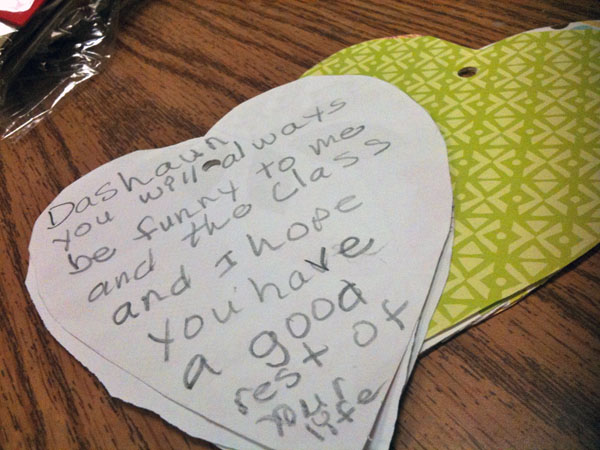 Dashaun
you will always
be funny to me
and the class
and I hope
you have
a good
rest of
your life